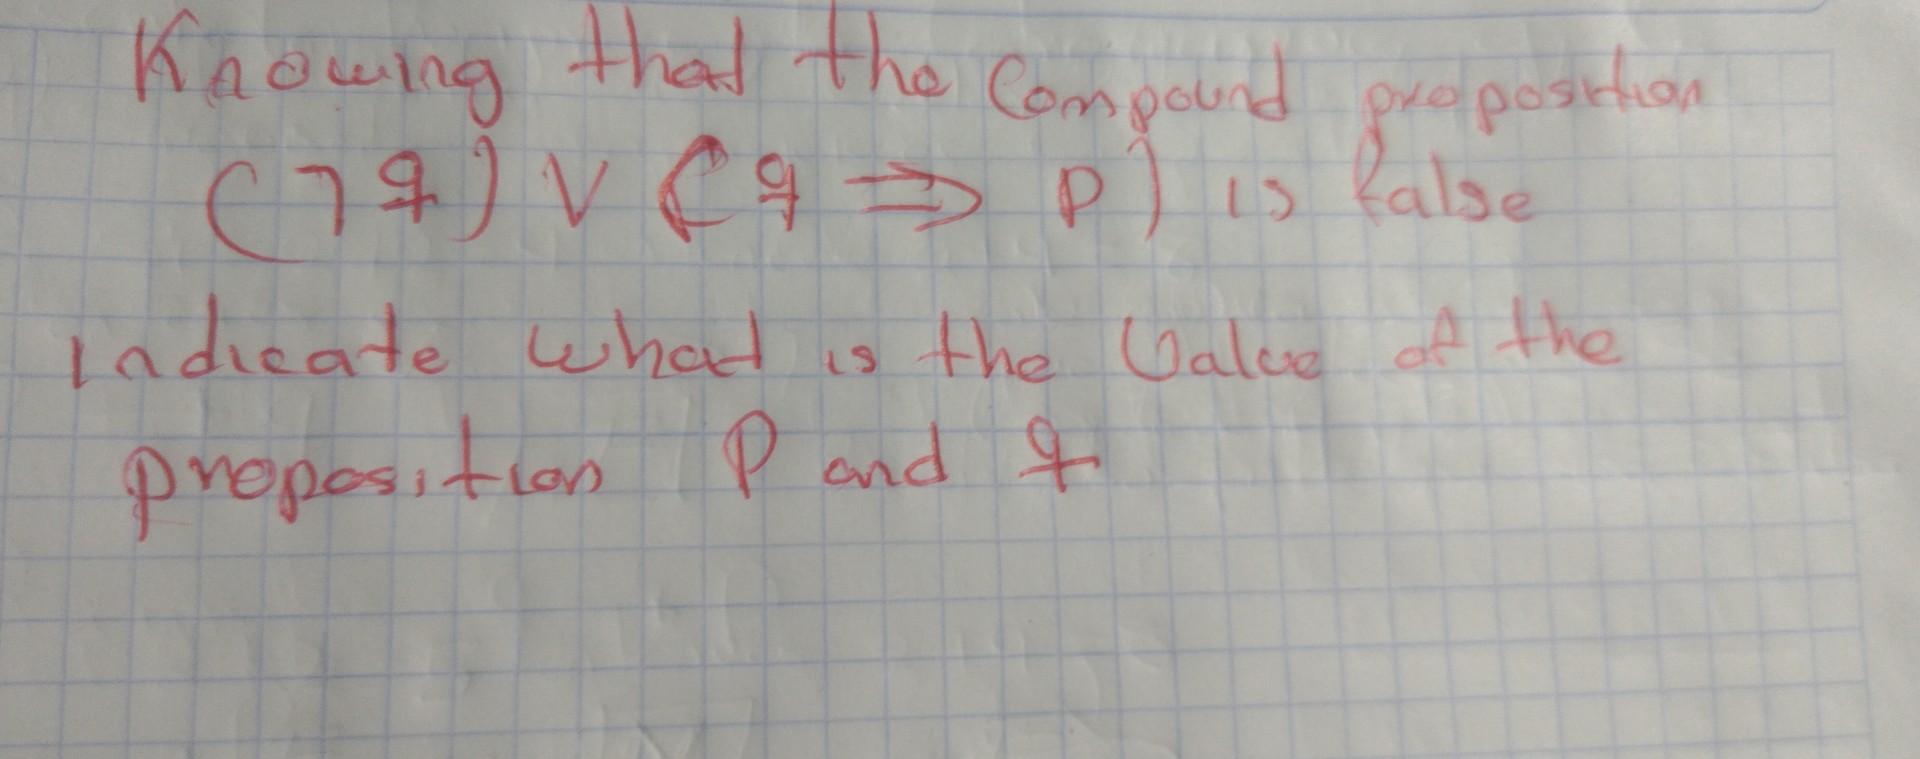 Knowing that the Compound proposition
(¬q) ∨ (q ⇒ p) is false
indicate what is the Value of the
proposition P and q